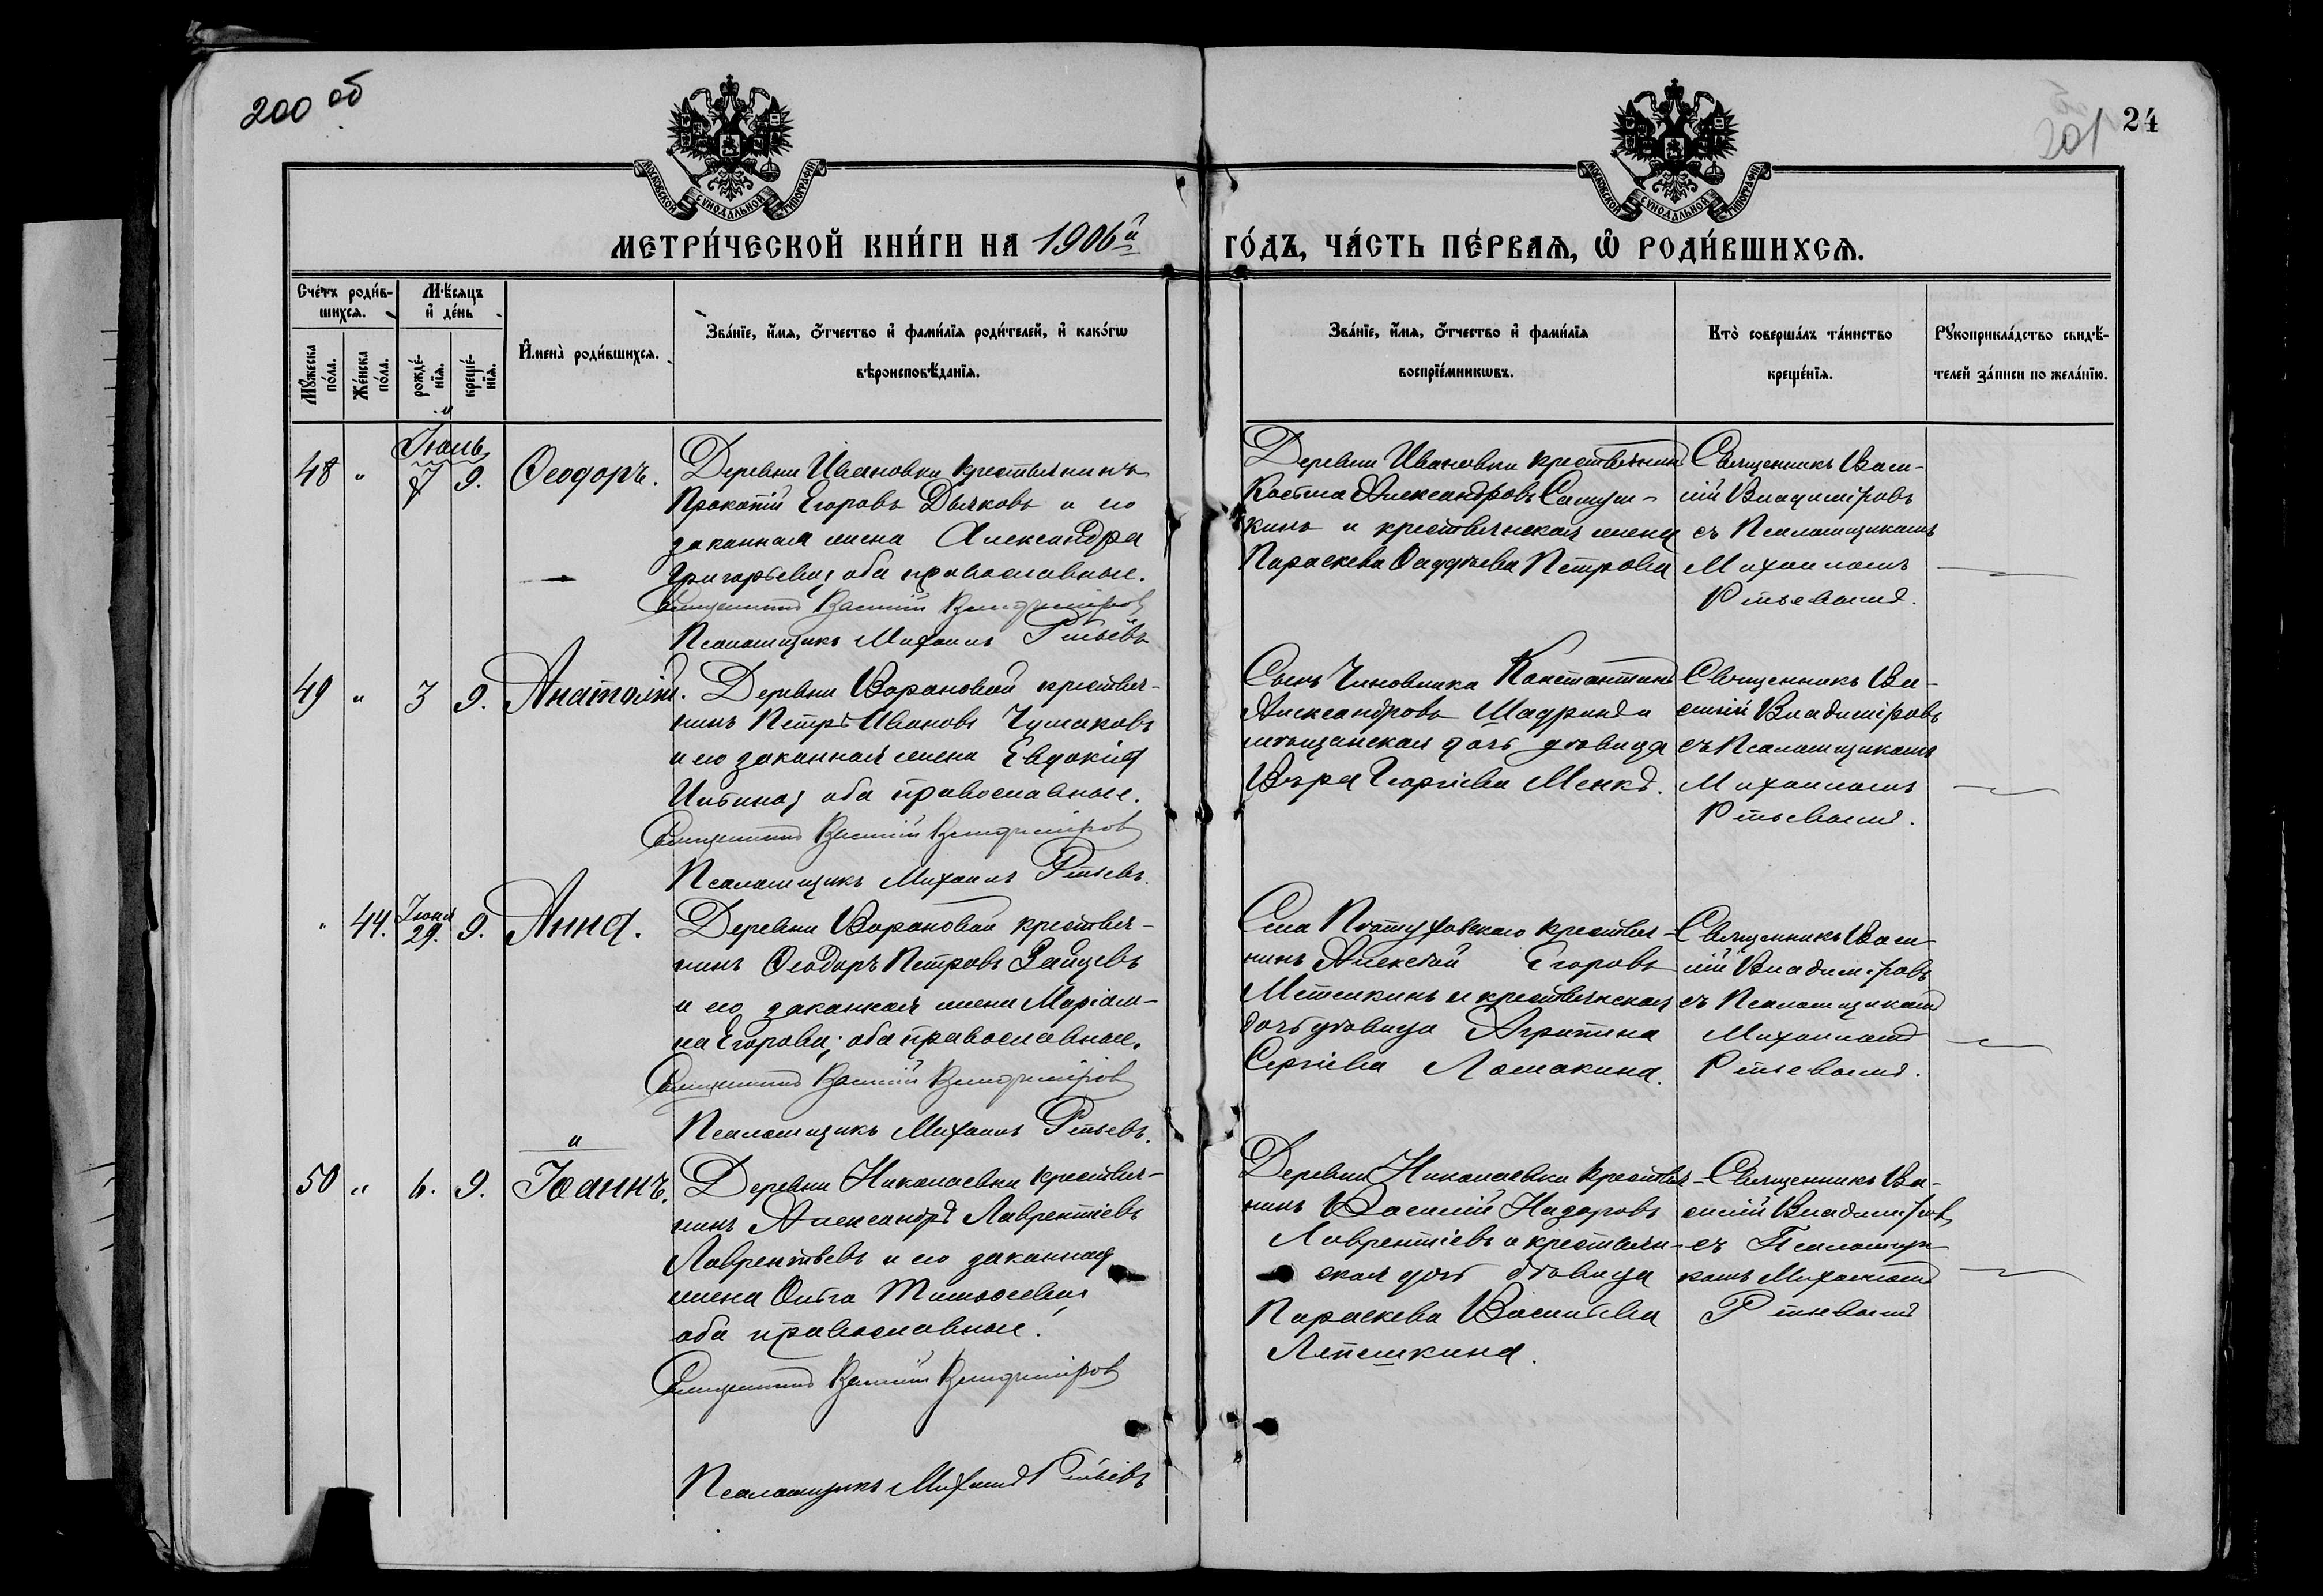 200 об
201
24
МОСКОВСКОЙ СУНОДАЛЬНОЙ ТИПОГРАФІИ
МОСКОВСКОЙ СУНОДАЛЬНОЙ ТИПОГРАФІИ
МЕТРИ́ЧЕСКОЙ КНИ́ГИ НА 1906й
ГО́ДЪ, ЧА́СТЬ ПЕ́РВАѦ, Ѡ҆ РОДИ́ВШИХСѦ.
Сче́тъ роди́в-
шихсѧ.
Мѣ́сѧцъ
и҆ де́нь
Мꙋ́жеска
по́ла.
Же́нска
по́ла.
рожде́-
нїѧ.
креще́-
нїѧ.
И҆мена̀ роди́вшихсѧ.
Зва́нїе, и҆́мѧ, ѻ҆́тчество и҆ фами́лїѧ роди́телей, и҆ како́гѡ
вѣроисповѣ́данїѧ.
Зва́нїе, и҆́мѧ, ѻ҆́тчество и҆ фами́лїѧ
воспрїе́мникѡвъ.
Кто̀ соверша́лъ та́инство
креще́нїѧ.
Рꙋкоприкла́дство свидѣ́-
телей за́писи по жела́нїю.
Іюль
48 " 7 9. Ѳеодоръ.
Деревни Ивановки крестьянинъ
Прокопій Егоровъ Дьячковъ и его
законная жена Александра
Григорьева, оба православные.
Священникъ Василій Владиміровъ
Псаломщикъ Михаилъ Ртьевъ
Деревни Ивановки крестьянинъ
Косьма Александровъ
кинъ и крестьянская жена
Параскева Ѳаддѣева Петрова
Священникъ Васи-
лій Владиміровъ
съ Псаломщикомъ
Михаиломъ
49 " 3 9. Анатолій.
Деревни Вороновой крестья-
нинъ Петръ Ивановъ Чумаковъ
и его законная жена Евдокія
Ильина, оба православные.
Священникъ Василій Владиміровъ
Псаломщикъ Михаилъ
Сынъ Чиновника Константинъ
Александровъ Шадринъ и
мѣщанская дочь дѣвица
Вѣра Георгіева Менкъ.
Священникъ Ва-
силій Владиміровъ
съ Псаломщикомъ
Михаиломъ
" 44. Іюня 29. 9. Анна.
Деревни Вороновой крестья-
нинъ Ѳеодоръ Петровъ Зайцевъ
и его законная жена Маріам-
на Егорова; оба православные.
Священникъ Василій Владиміровъ
Псаломщикъ Михаилъ
Села крестья-
нинъ Алексѣй Егоровъ
Метелкинъ и крестьянская
дочь дѣвица Агрипина
Сергіева Ломакина.
Священникъ Васи-
лій Владиміровъ
съ Псаломщикомъ
Михаиломъ
50 " 6. 9. Іоаннъ.
Деревни Николаевки крестья-
нинъ Александръ Лаврентіевъ
Лаврентьевъ и его законная
жена Ольга Тимоѳеева,
оба православные.
Священникъ Василій Владиміровъ
Псаломщикъ Михаилъ
Деревни Николаевки крестья-
нинъ Василій Назаровъ
Лаврентіевъ и крестьян-
ская дочь дѣвица
Параскева Васильева
Лепешкина.
Священникъ Ва-
силій Владиміровъ
съ Псаломщи-
комъ Михаиломъ